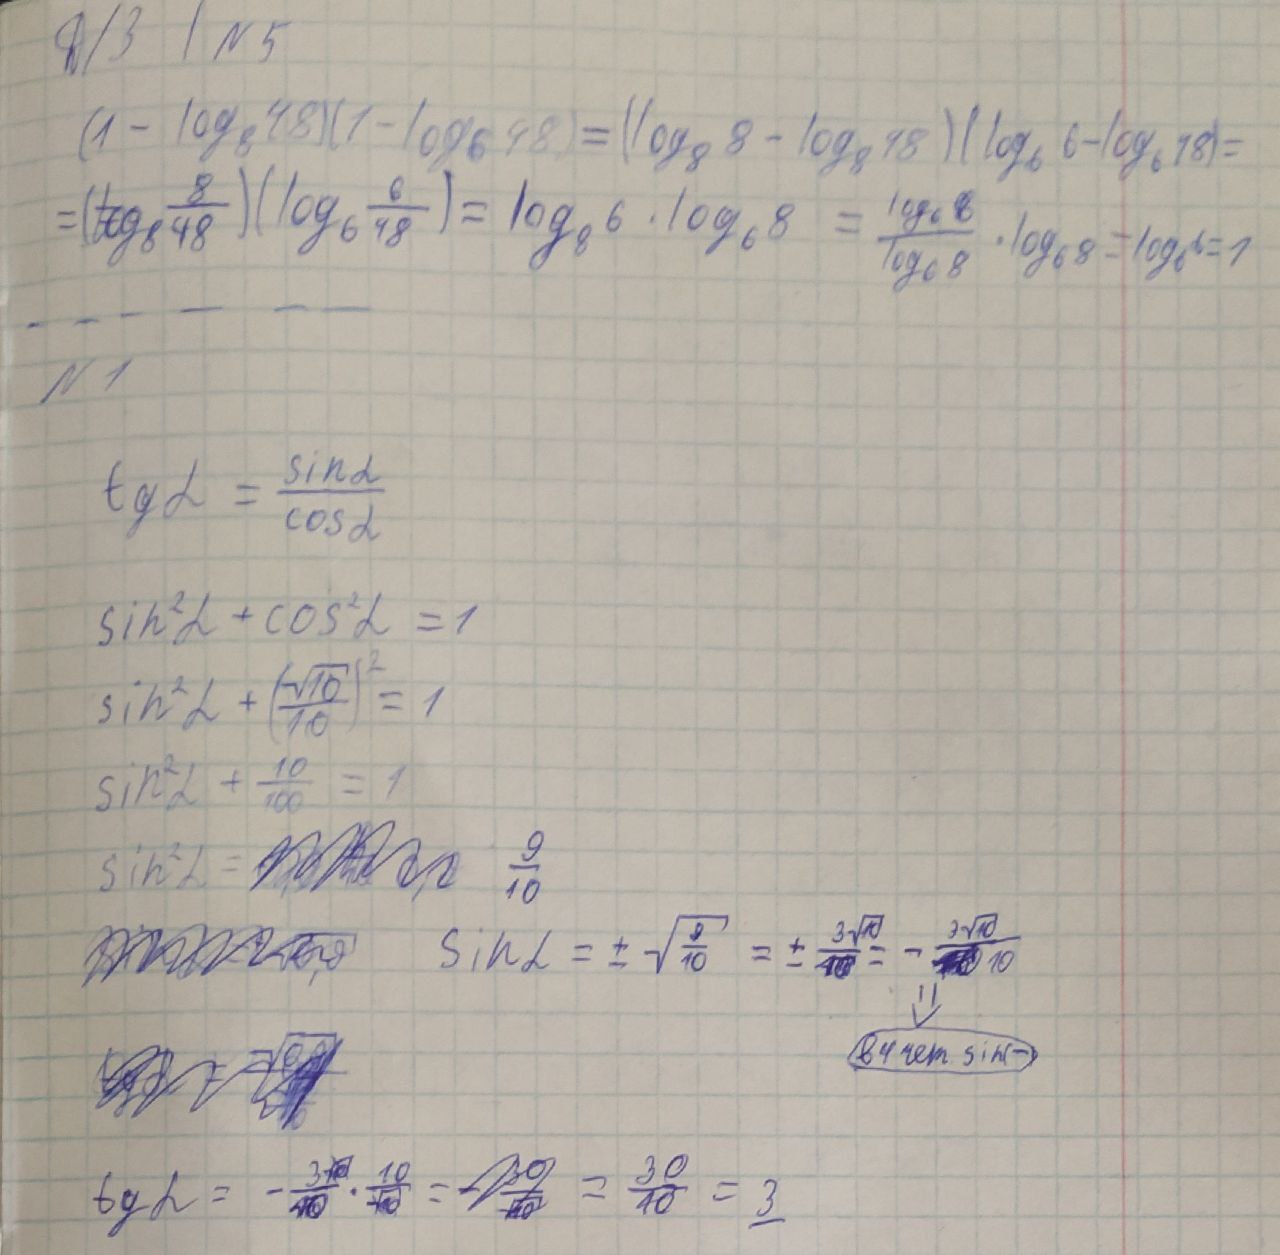 Д/З | N5
(1 - log₈48)(1 - log₆48) = (log₈8 - log₈48)(log₆6 - log₆48) =
= (log₈ 8/48)(log₆ 6/48) = log₈6 · log₆8 = log₆6/log₆8 · log₆8 = log₆6 = 1
N1
tgα = sinα/cosα
sin²α + cos²α = 1
sin²α + (√10/10)² = 1
sin²α + 10/100 = 1
sin²α = 9/10
sinα = ± √(9/10) = ± 3√10/10 = - 3√10/10
в 4 чет. sin(-)
tgα = - 3√10/10 · 10/√10 = 30/10 = 3